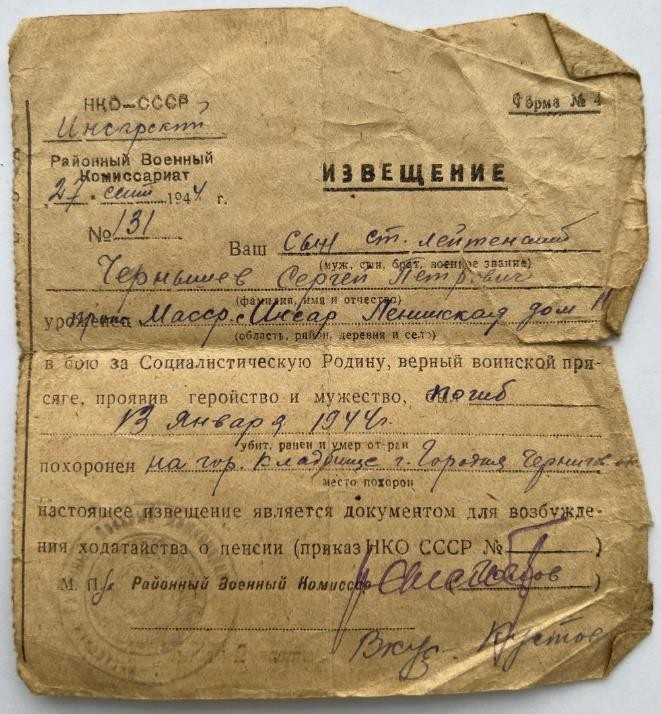 НКО—СССР
Инсарский
Районный Военный
Комиссариат
27 сент 1944 г.
№ 131
Форма № 4
ИЗВЕЩЕНИЕ
Ваш сын ст. лейтенант
(муж, сын, брат, военное звание)
Чернышев Сергей Петрович
(фамилия, имя и отчество)
уроженец Масср. Инсар Ленинская дом 11
(область, район, деревня и село)
в бою за Социалистическую Родину, верный воинской при-
сяге, проявив геройство и мужество, был погиб
13 Января 1944г.
убит, ранен и умер от ран
похоронен на гор. кладбище г. Городня Чернигов
место похорон
настоящее извещение является документом для возбужде-
ния ходатайства о пенсии (приказ НКО СССР № )
М. П. Районный Военный Комиссар